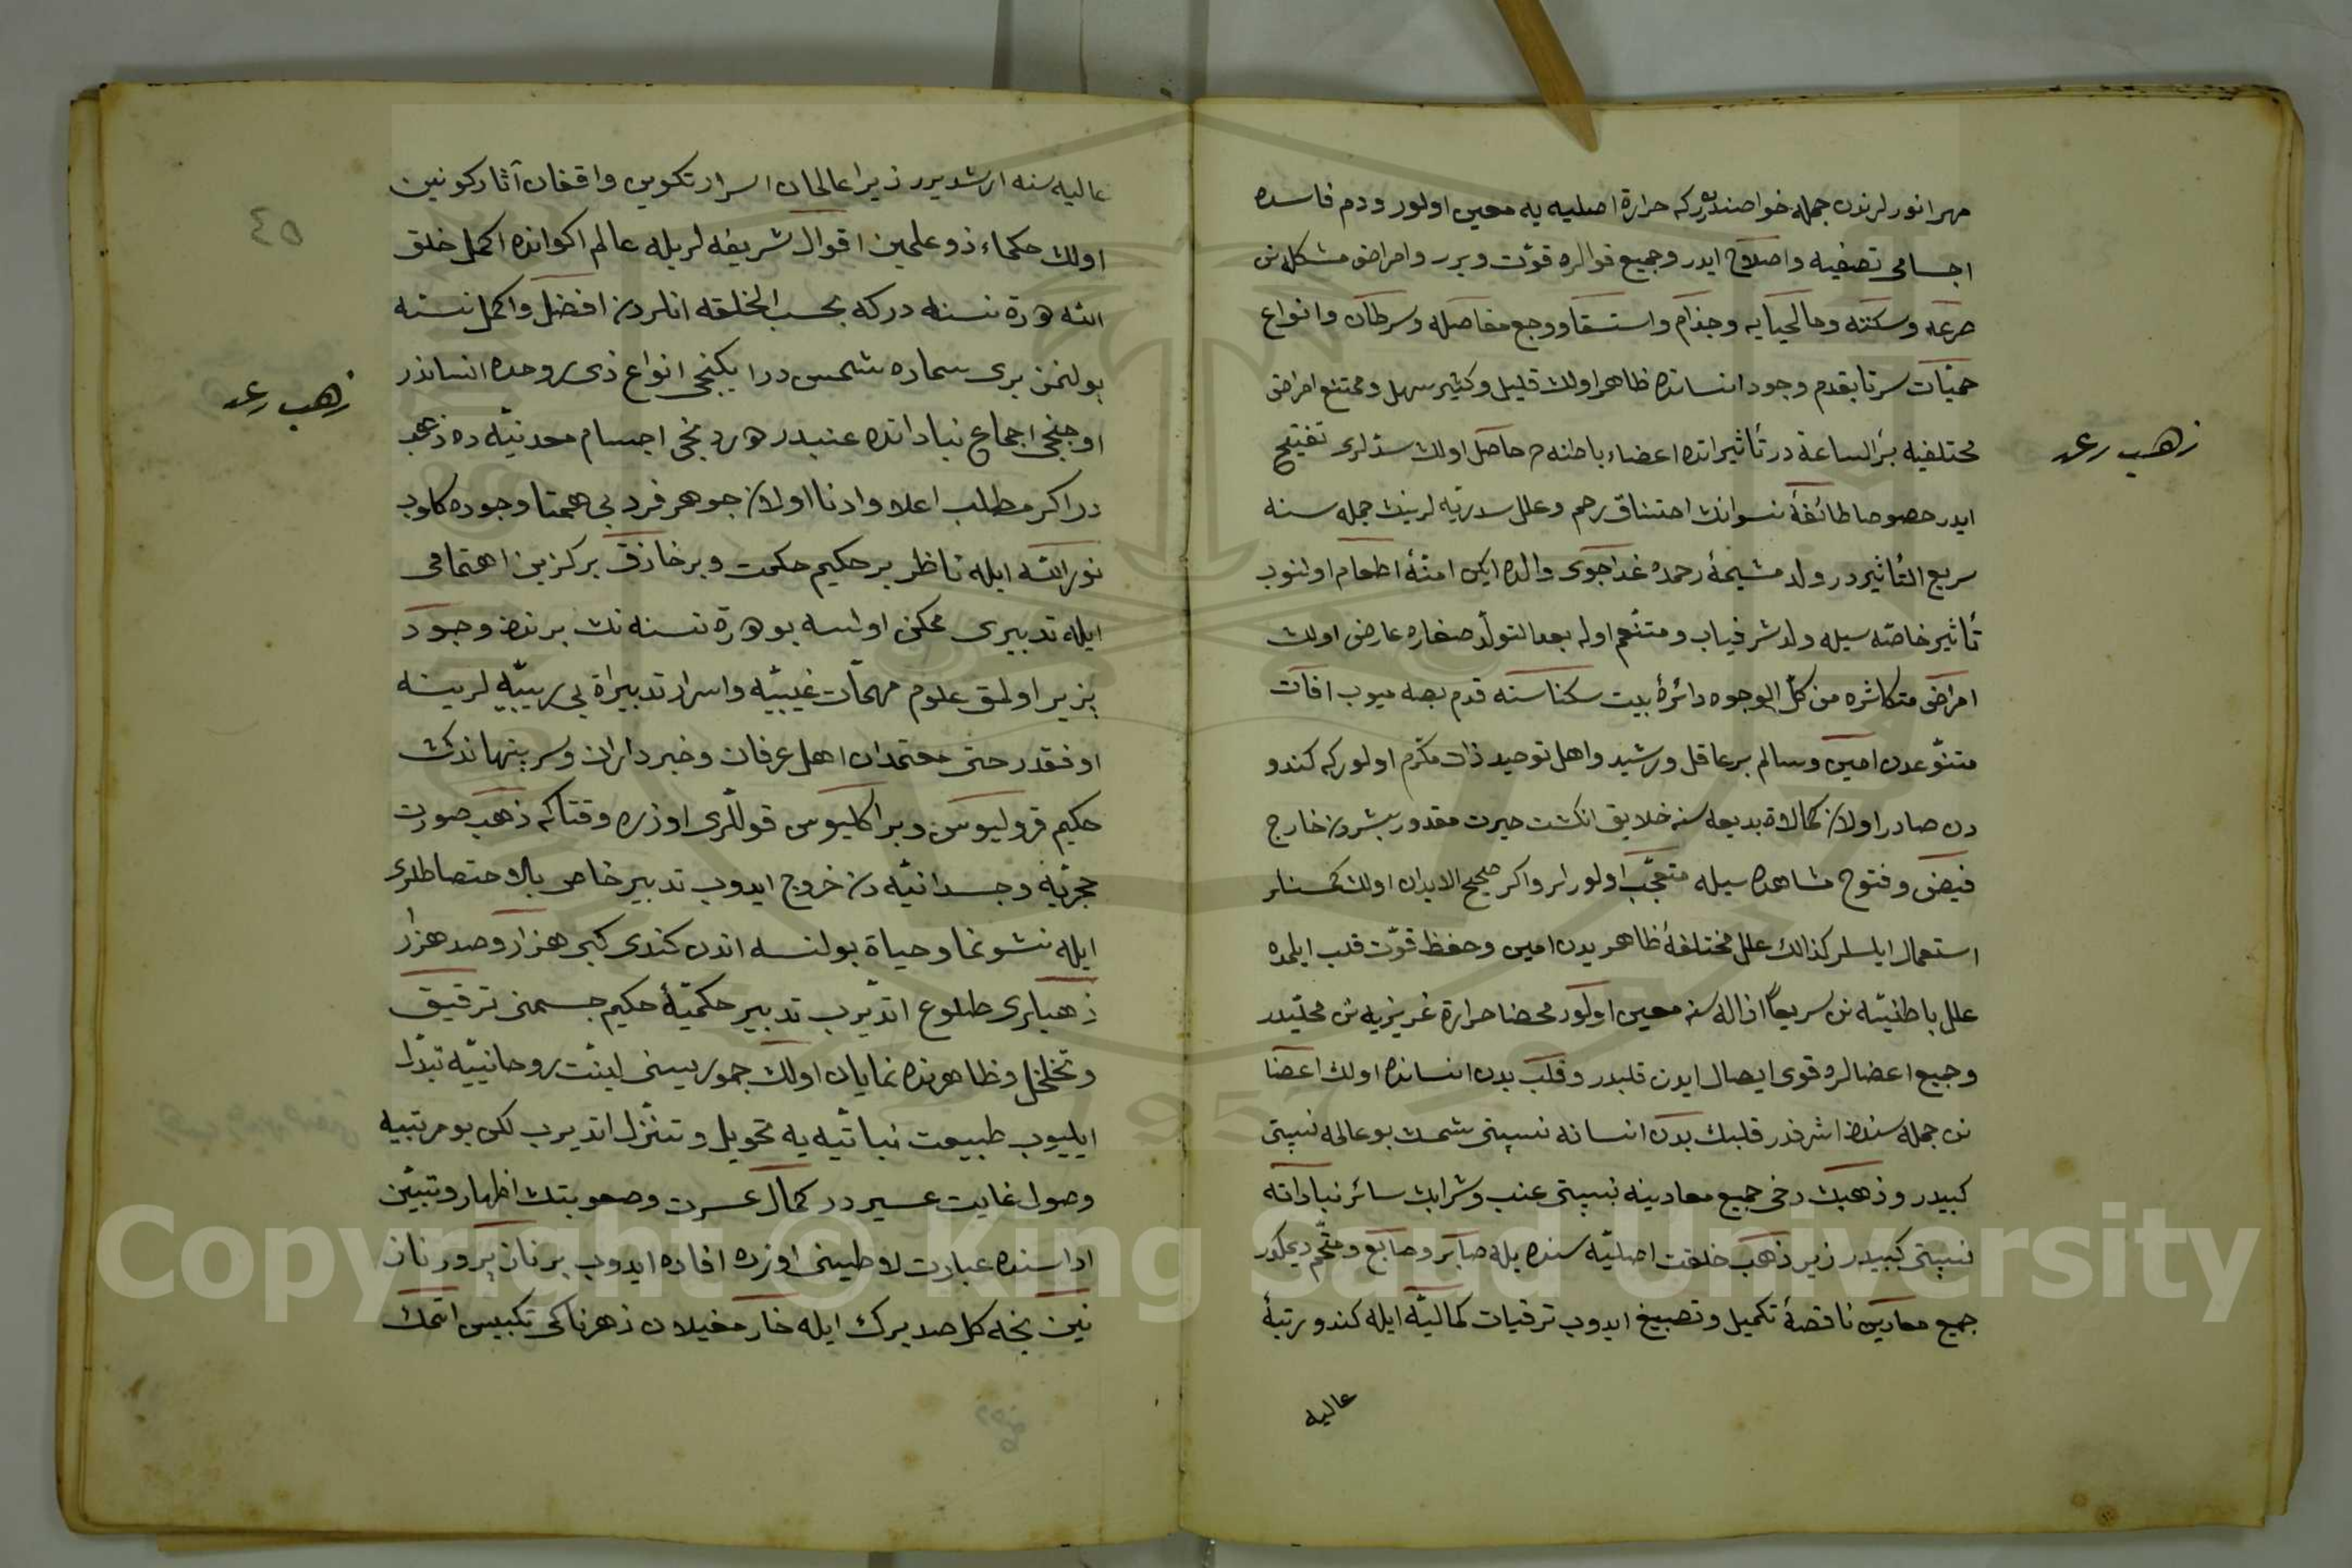 مهر انورلرندن جمله خواصندندر كه حرارة اصليه يه معين اولور ودم فاسده
اجسامى تصفيه واصلاح ايدر وجميع قوالره قوّت ويرر وامراض مشكله نن
صرعه وسكته ومالحيايه وجذام واستسقا ووجع مفاصله وسرطان وانواع
حميّات سرتابقدم وجود انسانده ظاهر اولان قليل وكثير سهل وممتنع امراض
مختلفيه برّ الساعة در تأثيراتده اعضاء باطنه ده حاصل اولان سدّلرى تفتيح
ايدر خصوصا طائفهٔ نسوانك احتناق رحم وعلل سدريّه لرينك جمله سنه
سريع التأثيردر ولد مشيمهٔ رحمده غداجوى والده ايكن امنهٔ اطعام اولنوب
تأثير خاصّه سيله ولد شرفياب ومتنعم اوله بعد التولّد صغاره عارض اولان
امراض متكاثره من كلّ الوجوه دائرهٔ بيت سكناسنه قدم بصه ميوب افات
متنوّعدن امين وسالم بر عاقل ورشيد واهل توحيد ذات مكرّم اولور كه كندو
دن صادر اولان كمالاة بديعه سنه خلايق انكشت حيرت مقدور بشردن خارج
فيض وفتوح مشاهده سيله متعجّب اولورلر واكر صحيح الابدان اولان كمسنه لر
استعمال ايلسلر كذالك علل مختلفهٔ ظاهريدن امين وحفظ قوّت قلب ايلمده
علل باطنيّه نن سريعاً ازاله سنه معين اولور محضا حرارة غريزيه نن محلّيدر
وجميع اعضالره قوى ايصال ايدن قلبدر وقلب بدن انسانده اولان اعضا
نن جمله سندن اشرفدر قلبك بدن انسانه نسبتى شمسك بو عالمه نسبتى
كبيدر وذهبك دخى جميع معادينه نسبتى عنب وشرابك سائر نباداته
نسبتى كبيدر زيرا ذهب خلقت اصليّه سنده بله صابر وصابغ ومتمّم ديمكدر
جميع معادين ناقصهٔ تكميل وتصبيغ ايدوب ترقيات كماليّه ايله كندو رتبهٔ
عاليه
ذهب رعد
عاليه سنه ارشديرر زيرا عالمان اسرار تكوين واقفان آثار كونين
اولان حكماء ذو علمين اقوال شريفه لريله عالم اكوانده اكمل خلق
الله هرة نسنه دركه بحسب الخلقه انلردن افضل واكمل نسنه
بولنمز برى سماده شمس در ايكنجى انواع ذى روحده انساندر
اوجنجى اجماع نباداتده عنبدر دردنجى اجسام معدنيّه ده ذهب
در اكر مطلب اعلا وادنا اولان جوهر فرد بى همتا وجوده كلوب
نور الله ايله ناظر بر حكيم حكمت وبر خازق بركزين اهتمامى
ايله تدبيرى ممكن اولسه بو هرة نسنه نك برندن وجود
پزير اولمق علوم مهمّات غيبيّه واسرار تدبيراة بى ريبيّه لرينه
اوفقدر حتى معتمدان اهل عرفان وخبرداران وسر پنهاندك
حكيم قروليوس وبراكليوس قوللرى اوزره وقتاكه ذهب صورت
حجريّه وجسدانيّه دن خروج ايدوب تدبير خاص بالاختصاصلرى
ايله نشونما وحياة بولنسه اندن كندى كبى هزار وصد هزار
ذهبلرى طلوع اتديرب تدبير حكميّهٔ حكيم جسمنى ترقيق
وتخلخل وظاهرنده نمايان اولان جموريسنى لينّت روحانييّه تبدّل
ايليوب طبيعت نباتيّه يه تحويل وتنزّل اتديرب لكن بو مرتبيه
وصول غايت عسيردر كمال عسرت وصعوبتك اظهار وتبيّن
اداسنده عبارت لاطينى اوزره افاده ايدوب بر نان پرور نان
نين نجه كل صد برك ايله خار مغيلان زهرناكى تكبيس اتمك
ذهب رعد
٤٥
Copyright © King Saud University
1957